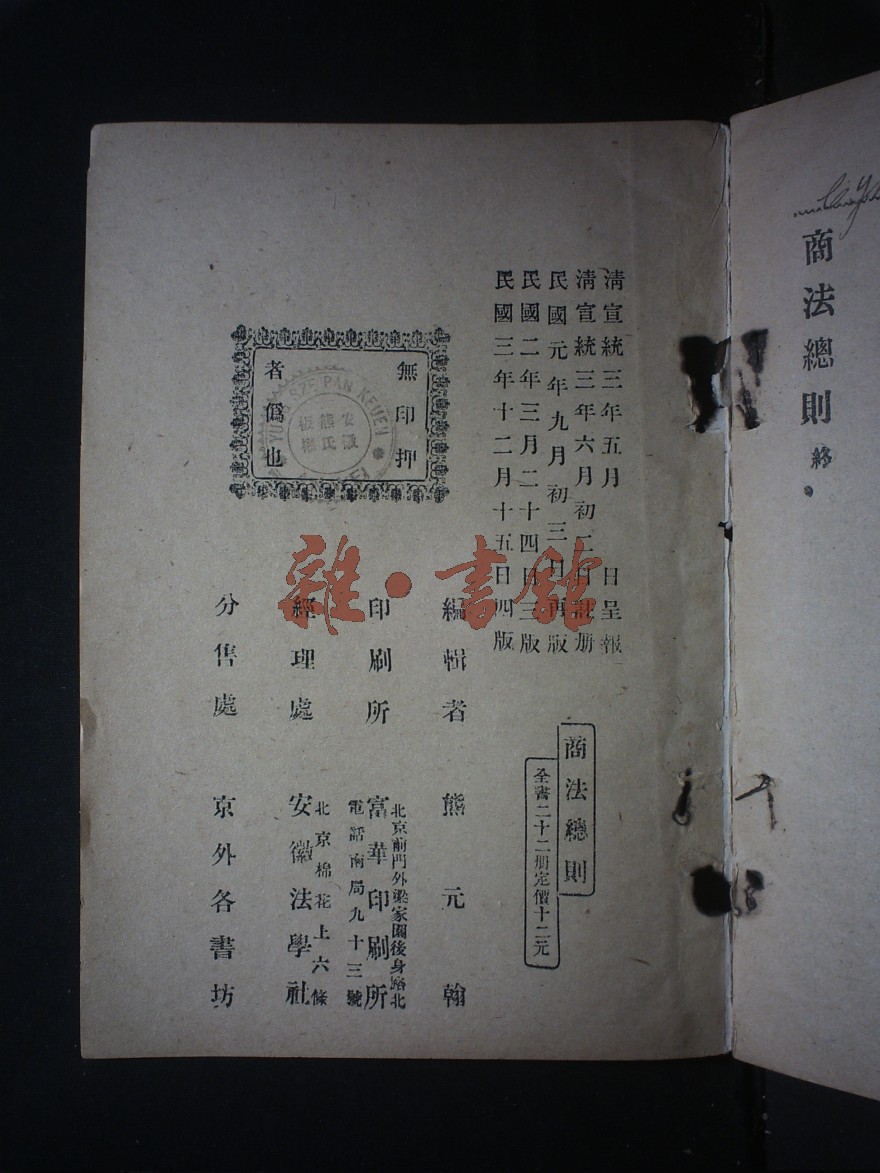 商法總則 終
清宣統三年五月 日呈報
清宣統三年六月初二日註册
民國元年九月初三日再版
民國二年三月二十四日三版
民國三年十二月十五日四版
商法總則
全書二十二册定價十二元
無印押
者僞也
PAN KEUEN
安徽
熊氏
編輯者 熊元翰
印刷所 富華印刷所
北京前門外梁家園後身路北
電話南局九十三號
經理處 安徽法學社
北京棉花上六條
分售處 京外各書坊
雜·書館